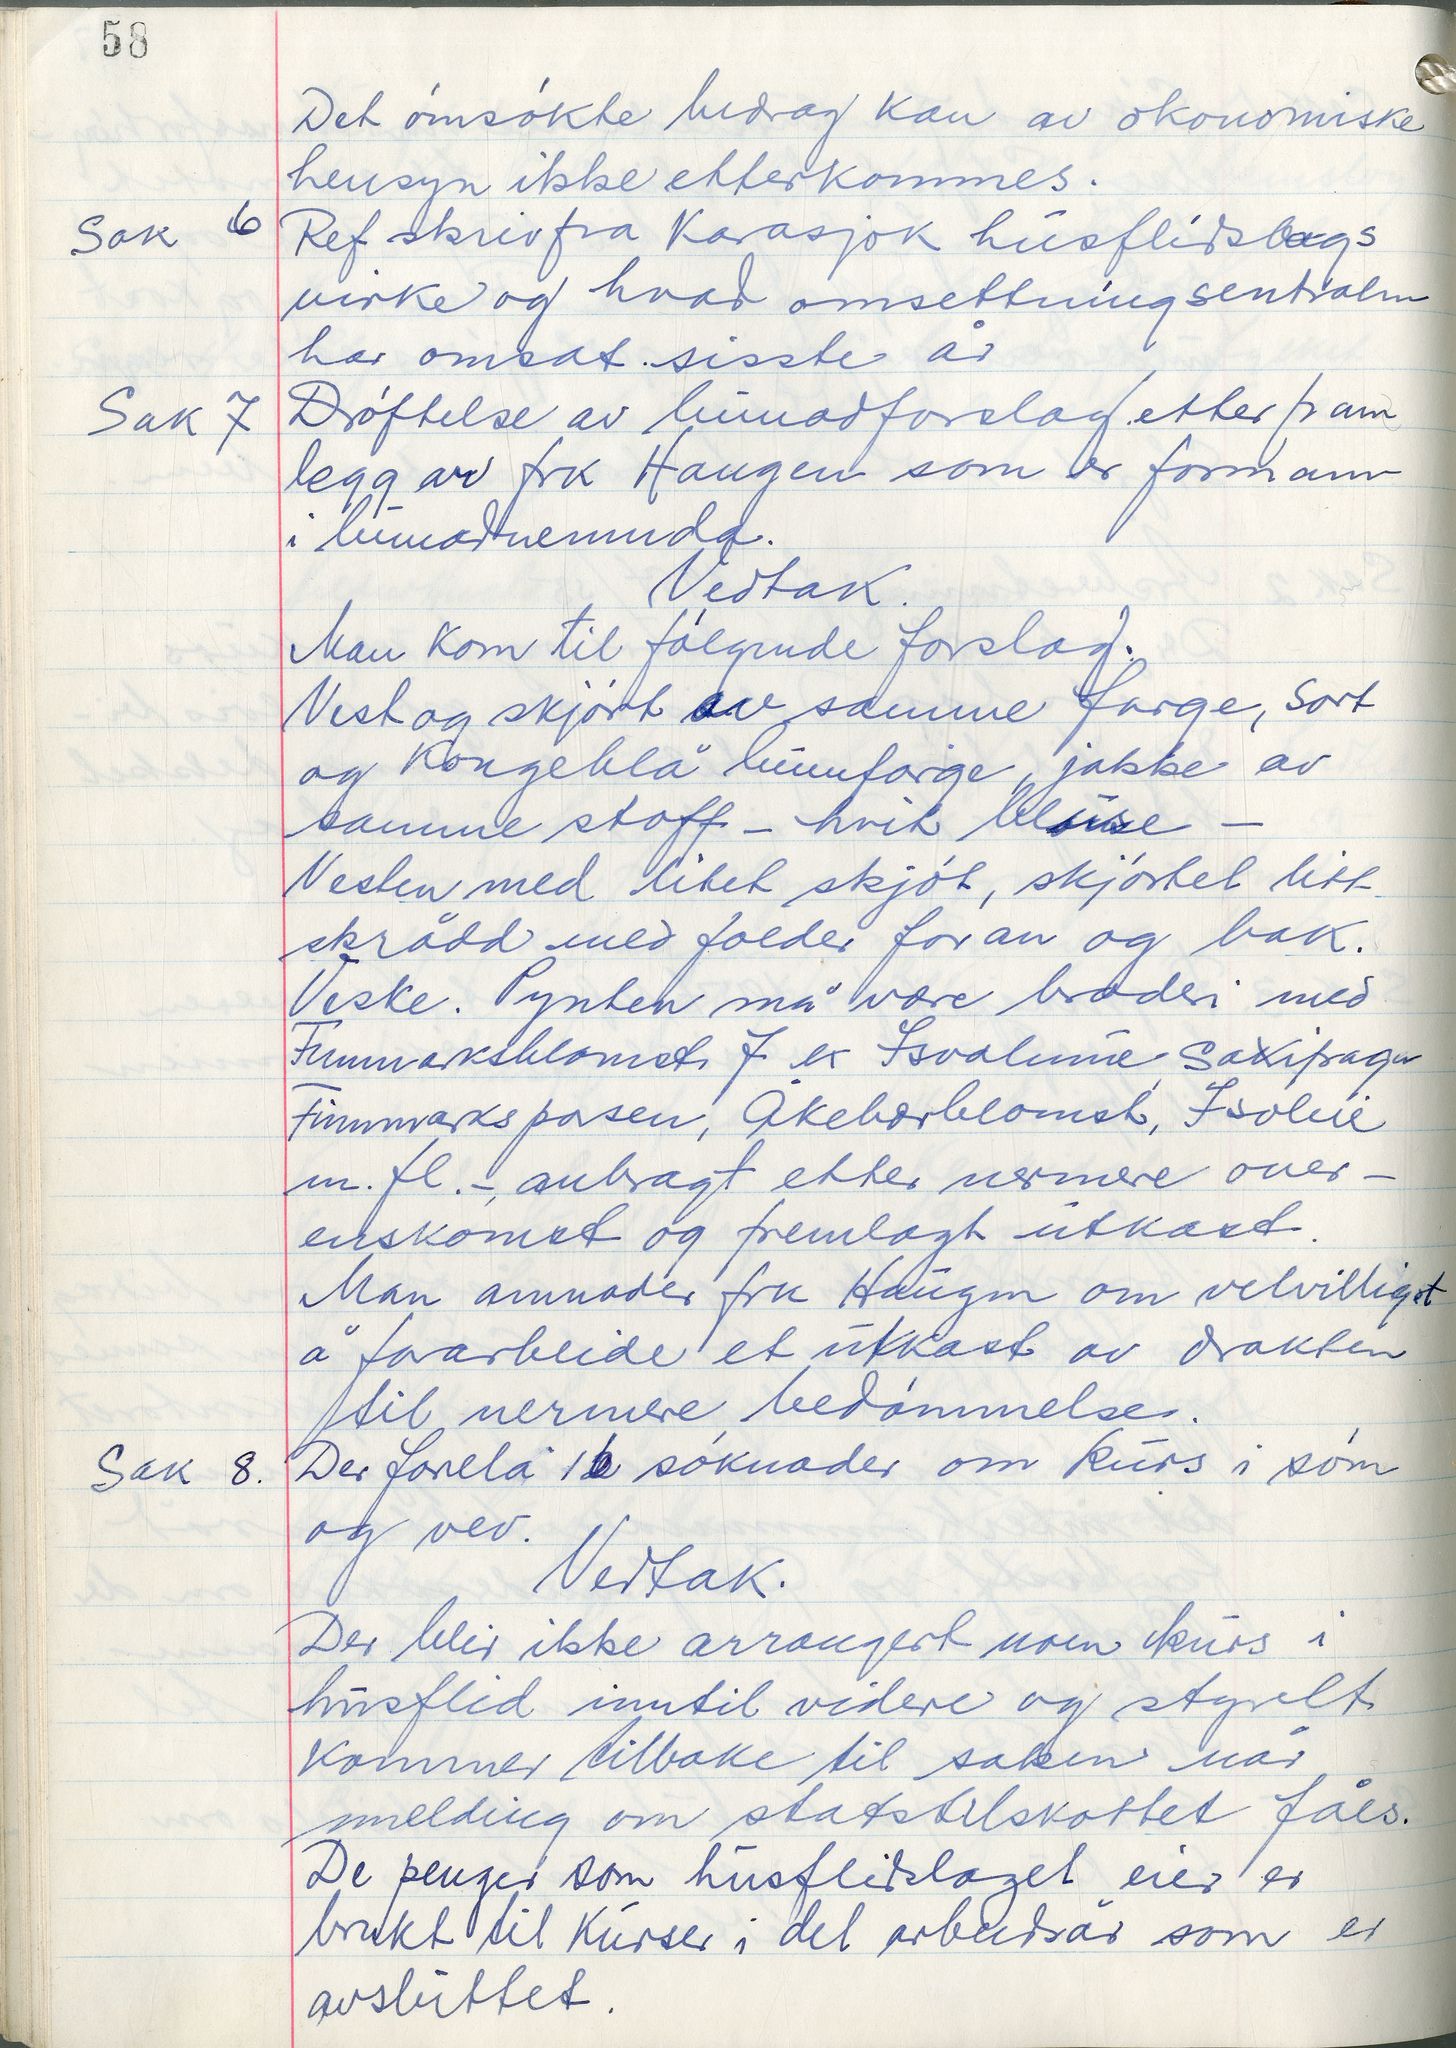 58
Det omsökte bedrag kan av økonomiske
hensyn ikke etterkommes.
Sak 6 Ref skriv fra Karasjok husflidslags
virke og hvad omsettningsentralen
har omsat sisste år
Sak 7 Dröftelse av bunadforslag etter fram
legg av frk Haugen som er formann
i bunadnemnda.
Vedtak.
Man kom til følgende forslag.
Vest og skjört av samme farge, sort
og Kongeblå bunnfarge, jakke av
samme stoff - hvit bluse -
Vesten med litet skjöt, skjörtet litt
skrådd med folder foran og bak.
Veske. Pynten må være broderi med
Finnmarksblomst f ex Isvalmue, Saxifraga
Finnmarkspors, Åkebærblomst, Isoleie
m. fl. -, anbragt etter nermere over-
enskomst og fremlagt utkast.
Man anmoder frk Haugen om velvilligst
å forarbeide et utkast av drakten
til nermere bedømmelse.
Sak 8. Der forelå 16 söknader om kurs i söm
og vev.
Vedtak.
Der blir ikke arrangert noen kurs i
husflid inntil videre og styret
kommer tilbake til saken når
melding om statstilskottet fåes.
De penger som husflidslaget eier er
brukt til kurser i det arbeidsår som er
avsluttet.